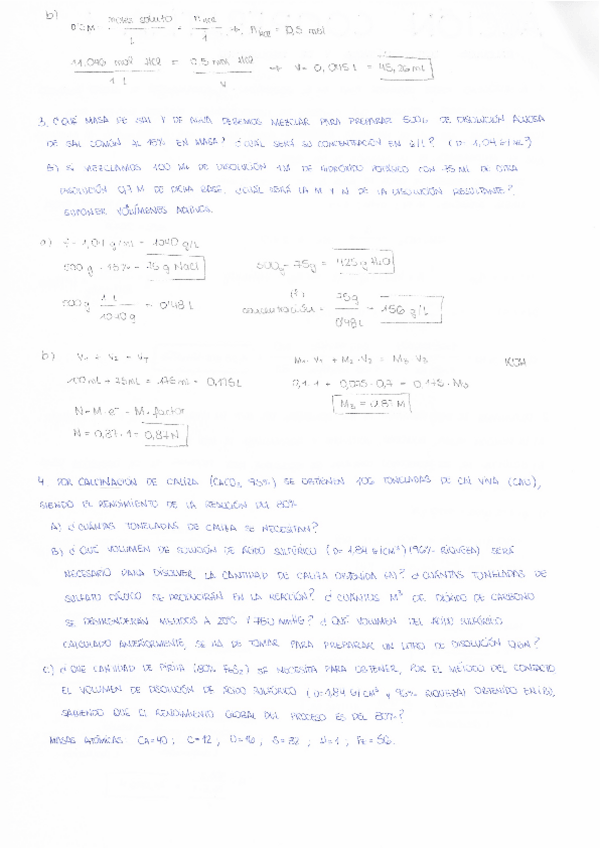 b)
0'5M = moles soluto / L = n HCl / 1 → n HCl = 0,5 mol
11.046 mol HCl / 1 L = 0.5 mol HCl / V → V = 0,045 L = 45,26 mL
3. ¿QUÉ MASA DE SAL Y DE AGUA DEBEMOS MEZCLAR PARA PREPARAR 500g DE DISOLUCIÓN ACUOSA
DE SAL COMÚN AL 15% EN MASA? ¿CUÁL SERÁ SU CONCENTRACIÓN EN g/L? (D= 1,04 g/mL)
B) SI MEZCLAMOS 100 mL DE DISOLUCIÓN 1M DE HIDRÓXIDO POTÁSICO CON 75 mL DE OTRA
DISOLUCIÓN 0,7 M DE DICHA BASE. ¿CUÁL SERÁ LA M Y N DE LA DISOLUCIÓN RESULTANTE?
SUPONER VOLÚMENES ADITIVOS.
a) 1,04 g/mL = 1040 g/L
500 g · 15% = 75 g NaCl 500g - 75g = 425 g H2O
500g 1 L / 1040 g = 0'48 L concentración = 75g / 0'48 L = 156 g/L
b) V1 + V2 = VT M1 · V1 + M2 · V2 = M3 V3 KOH
100 mL + 75 mL = 175 mL = 0,175 L 0,1 · 1 + 0,075 · 0,7 = 0,175 · M3
M3 = 0.87 M
N = M · e- = M · factor
N = 0,87 · 1 = 0,87 N
4 POR CALCINACIÓN DE CALIZA (CaCO3 95%) SE OBTIENEN 106 TONELADAS DE CAL VIVA (CaO),
SIENDO EL RENDIMIENTO DE LA REACCIÓN DEL 80%
A) ¿CUÁNTAS TONELADAS DE CALIZA SE NECESITAN?
B) ¿QUÉ VOLUMEN DE SOLUCIÓN DE ÁCIDO SULFÚRICO (D= 1,84 g/cm³) (96% RIQUEZA) SERÁ
NECESARIO PARA DISOLVER LA CANTIDAD DE CALIZA OBTENIDA EN? ¿CUÁNTAS TONELADAS DE
SULFATO CÁLCICO SE PRODUCIRÁN EN LA REACCIÓN? ¿CUÁNTOS M³ DE DIÓXIDO DE CARBONO
SE DESPRENDERÁN MEDIDOS A 20ºC Y 750 mmHg? ¿QUÉ VOLUMEN DEL ÁCIDO SULFÚRICO
CALCULADO ANTERIORMENTE, SE HA DE TOMAR PARA PREPARAR UN LITRO DE DISOLUCIÓN
C) ¿QUÉ CANTIDAD DE PIRITA (80% FeS2) SE NECESITA PARA OBTENER, POR EL MÉTODO DEL CONTACTO,
EL VOLUMEN DE DISOLUCIÓN DE ÁCIDO SULFÚRICO (D= 1.84 g/cm³ y 96% RIQUEZA) OBTENIDO EN (B),
SABIENDO QUE EL RENDIMIENTO GLOBAL DEL PROCESO ES DEL 80%?
MASAS ATÓMICAS Ca=40; C=12, O=16, S=32; H=1; Fe=56.